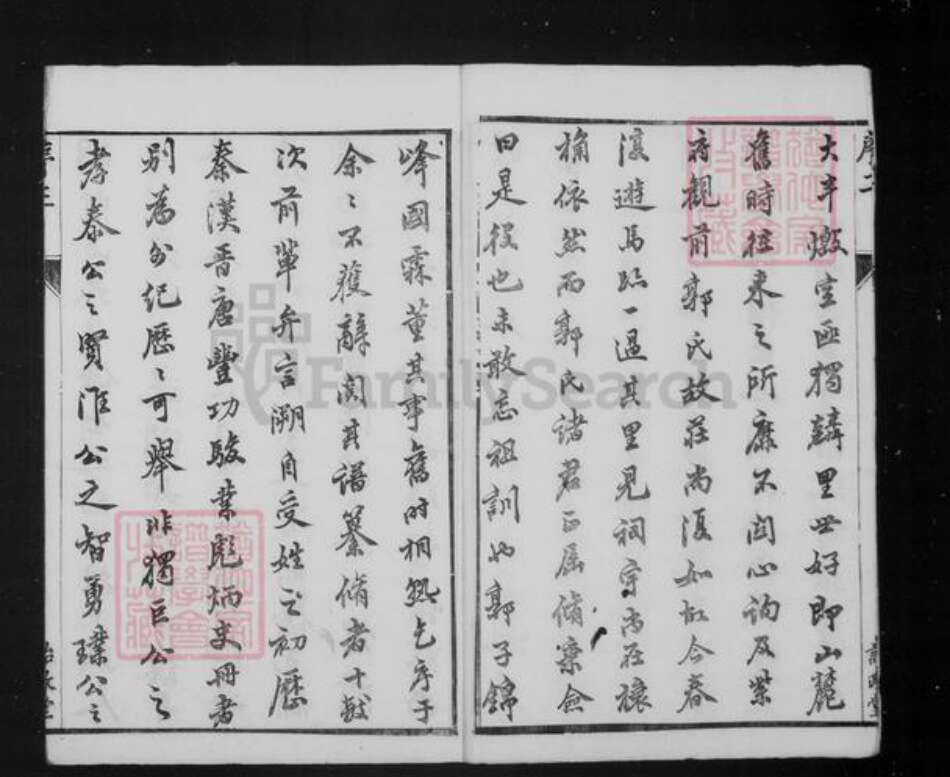 序二
大半燬室亟獨麟里世好即山麓
舊時往來之所靡不関心詢及紫
府觀前郭氏故莊尚復如故今春
復遊馬跡一過其里見祠宇尚在穰
桷依然而郭氏諸君正届脩寀僉
曰是役也未敢忘祖訓也郭子錦
峰國霖董其事舊時相熟乞序于
余之不獲辭閱其譜纂脩者十載
次前輩弁言溯自受姓之初歷
秦漢晋唐豐功駿業彪炳史冊者
別為分紀歷歷可舉非獨巨公之
孝泰公之賢淮公之智勇璞公之
序三
FamilySearch